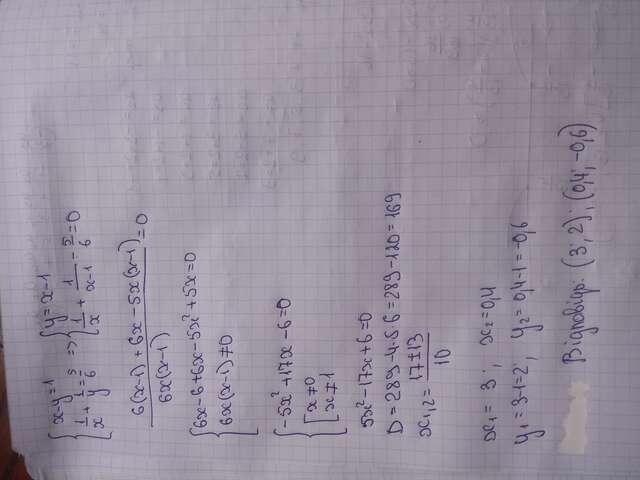 {x-y=1 {y=x-1
{1/x + 1/y = 5/6 => {1/x + 1/x-1 - 5/6 = 0
6(x-1)+6x-5x(x-1) / 6x(x-1) = 0
{6x-6+6x-5x²+5x=0
{6x(x-1)≠0
{-5x²+17x-6=0
{[x≠0
x≠1
5x²-17x+6=0
D=289-4·5·6=289-120=169
x₁,₂= 17±13 / 10
x₁=3; x₂=0,4
y₁=3-1=2, y₂=0,4-1=-0,6
Відповідь: (3; 2); (0,4; -0,6)